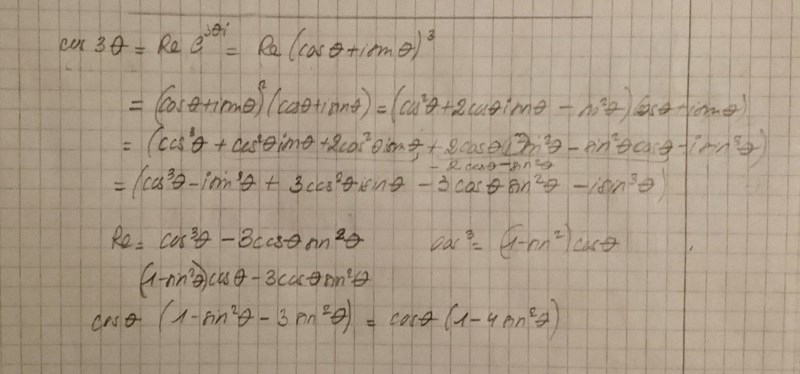 cos 3θ = Re e^{3θi} = Re (cosθ + i sin θ)^3
= (cosθ + i sinθ)^2 (cosθ + i sinθ) = (cos^2θ + 2cosθ i sinθ - sin^2θ)(cosθ + i sinθ)
= (cos^3θ + cos^2θ i sinθ + 2cos^2θ i sinθ + 2cosθ i^2 sin^2θ - sin^2θ cosθ - i sin^3θ)
- 2 cosθ sin^2θ
= (cos^3θ - i sin^3θ + 3cos^2θ i sinθ - 3cosθ sin^2θ - i sin^3θ)
Re = cos^3θ - 3cosθ sin^2θ cos^3 = (1-sin^2) cosθ
(1-sin^2θ) cosθ - 3cosθ sin^2θ
cosθ (1 - sin^2θ - 3 sin^2θ) = cosθ (1 - 4 sin^2θ)